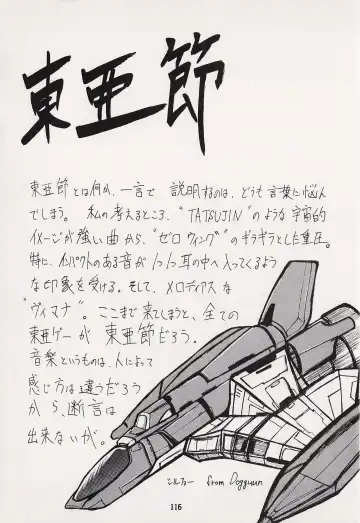 東亜節
東亜節とは何か、一言で説明するのは、どうも言葉に悩ん
でしまう。私の考えるところ、"TATSUJIN"のような宇宙的
イメージが強い曲から、"ゼロウィング"のギラギラとした重圧。
特に、インパクトのある音が1つ1つ耳の中へ入ってくるよう
な印象を受ける。そして、メロディアスな
"ヴィマナ"。ここまで来てしまうと、全ての
東亜ゲーが東亜節だろう。
音楽というものは、人によって
感じ方は違うだろう
から、断言は
出来ないが。
シルフィー from Dogyuun
116